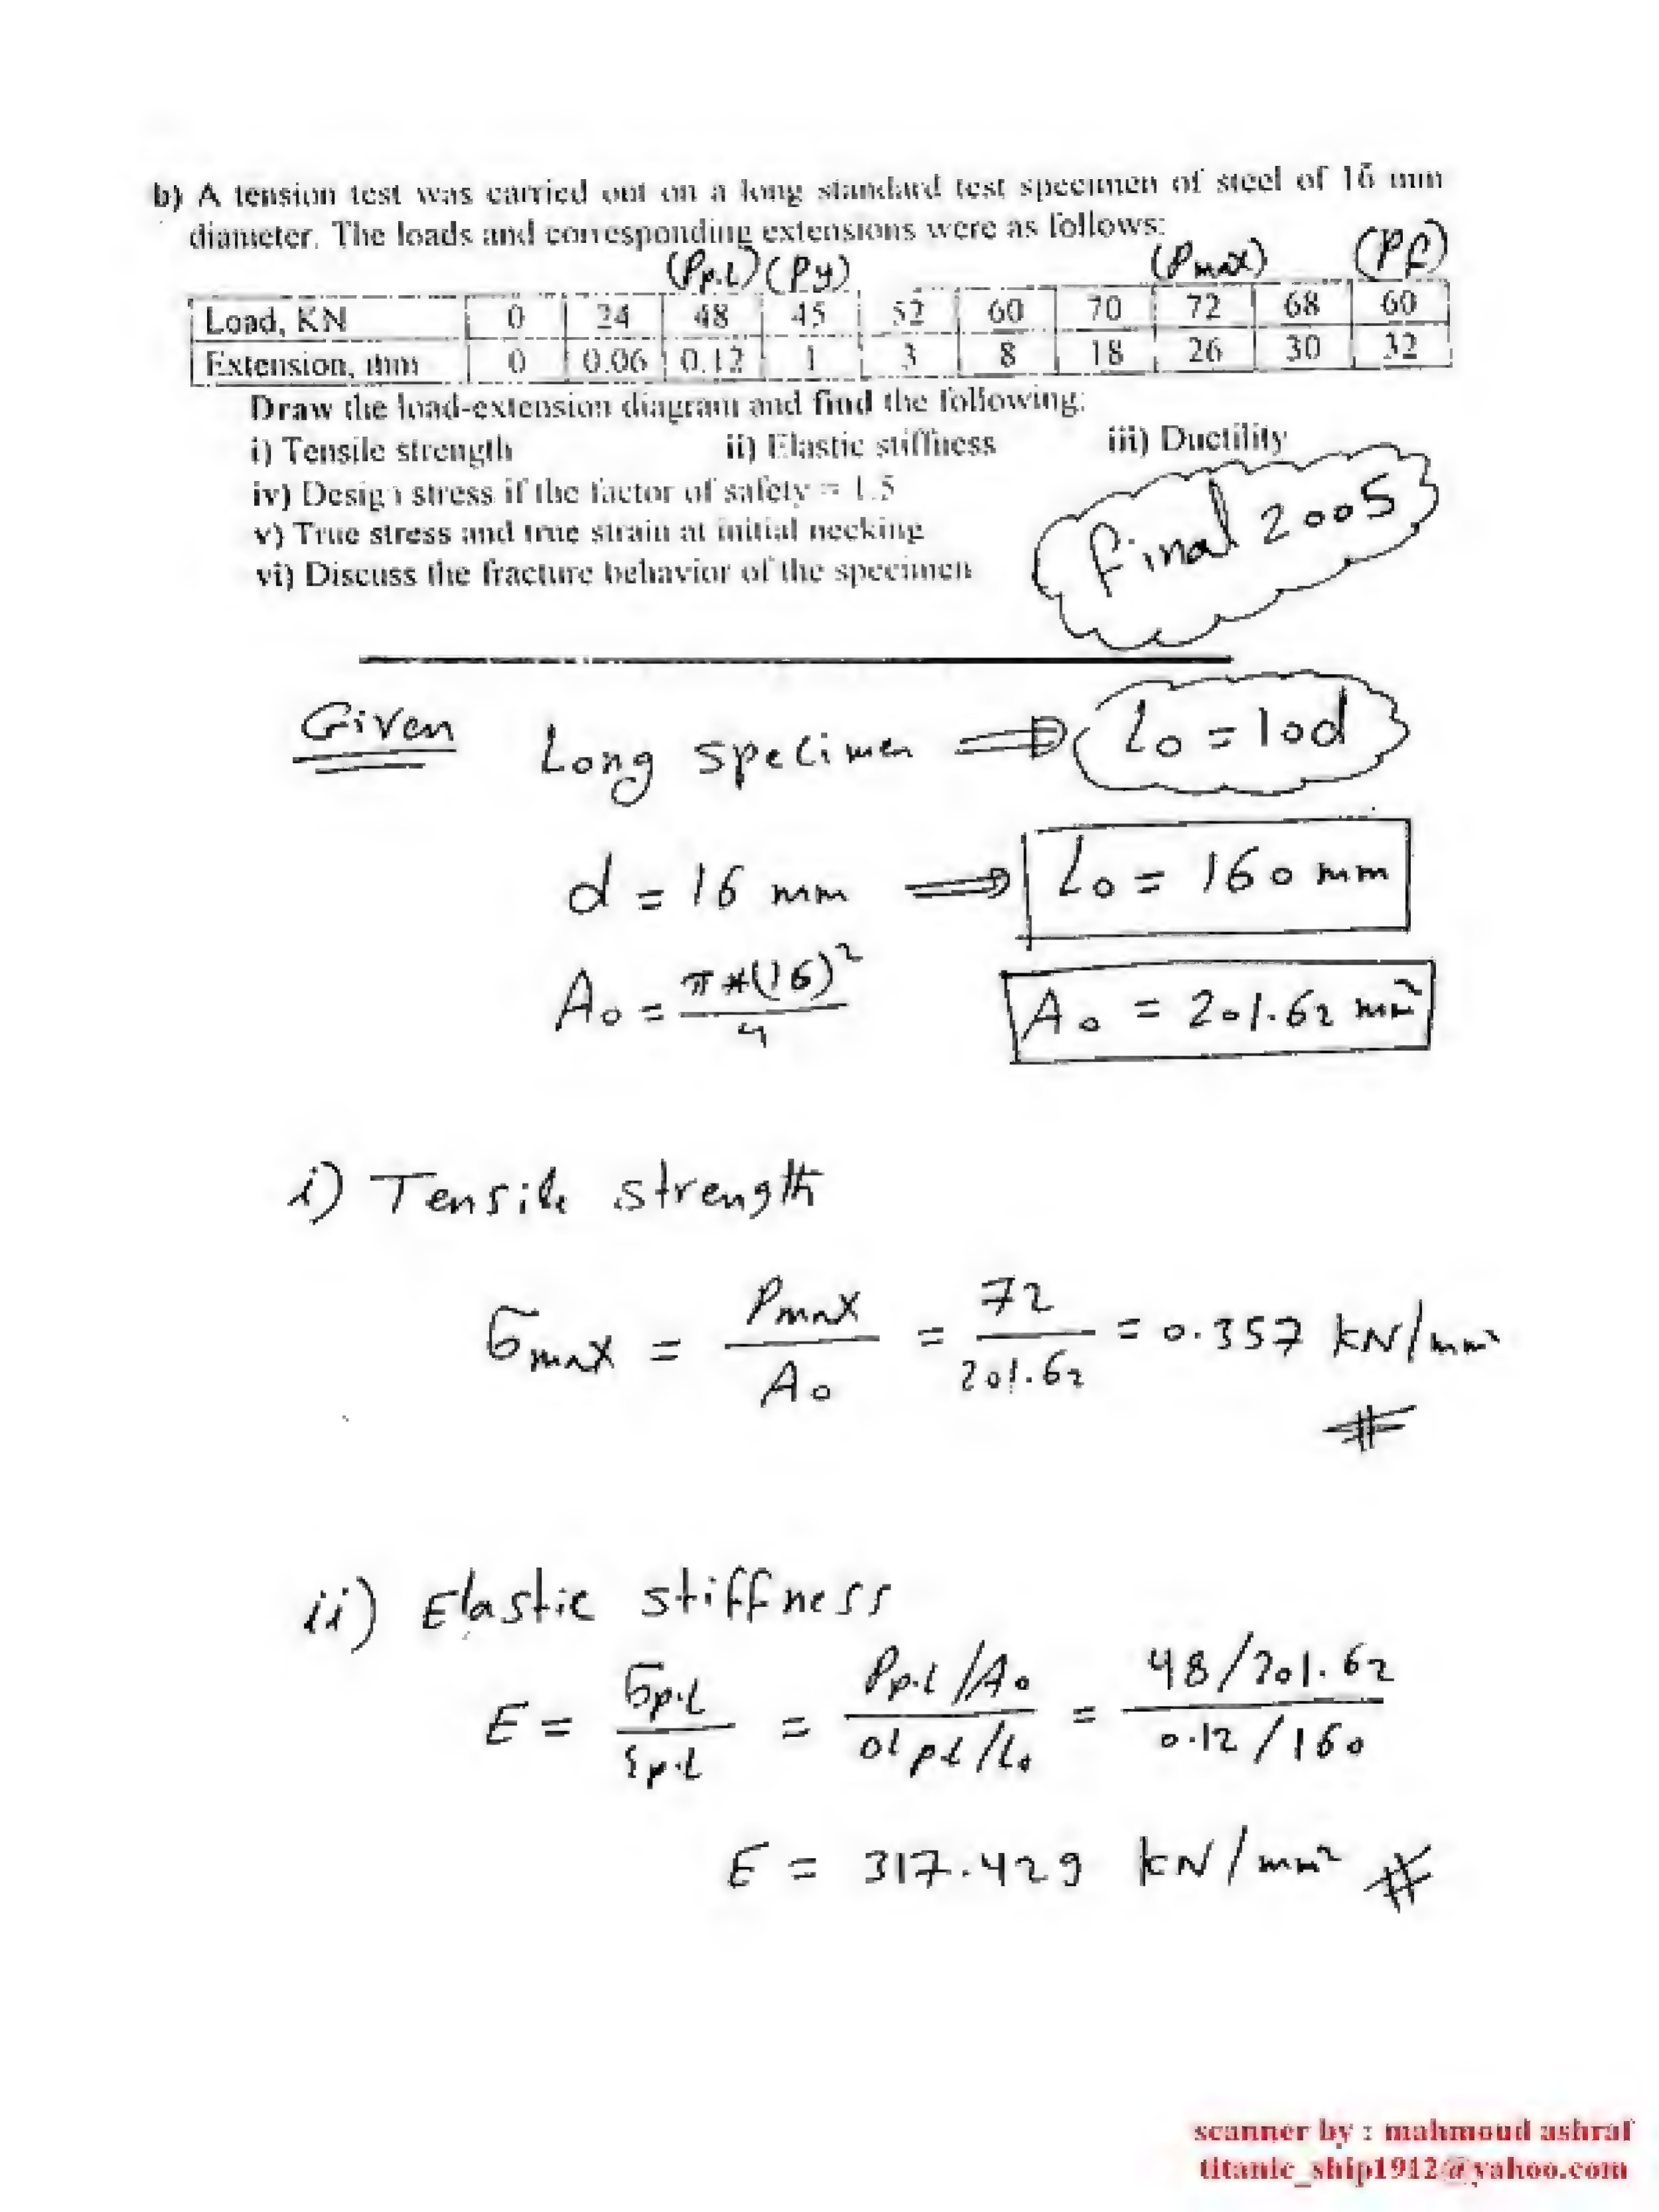 b) A tension test was carried out on a long standard test specimen of steel of 16 mm
diameter. The loads and corresponding extensions were as follows:
(Pp.L) (Py) (Pmax) (Pf)
Load, KN 0 24 48 45 52 60 70 72 68 60
Extension, mm 0 0.06 0.12 1 3 8 18 26 30 32
Draw the load-extension diagram and find the following:
i) Tensile strength ii) Elastic stiffness iii) Ductility
iv) Design stress if the factor of safety = 1.5
v) True stress and true strain at initial necking
vi) Discuss the fracture behavior of the specimen
Final 2005
Given Long specimen ⇒ L₀ = 10d
d = 16 mm ⇒ L₀ = 160 mm
A₀ = π*(16)²/4 A₀ = 201.62 mm²
i) Tensile strength
σmax = Pmax/A₀ = 72/201.62 = 0.357 kN/mm²
ii) Elastic stiffness
E = σp.L/εp.L = (Pp.L/A₀)/(ΔLpL/L₀) = (48/201.62)/(0.12/160)
E = 317.429 kN/mm²
scanner by : mahmoud ashraf
titanic_ship1912@yahoo.com